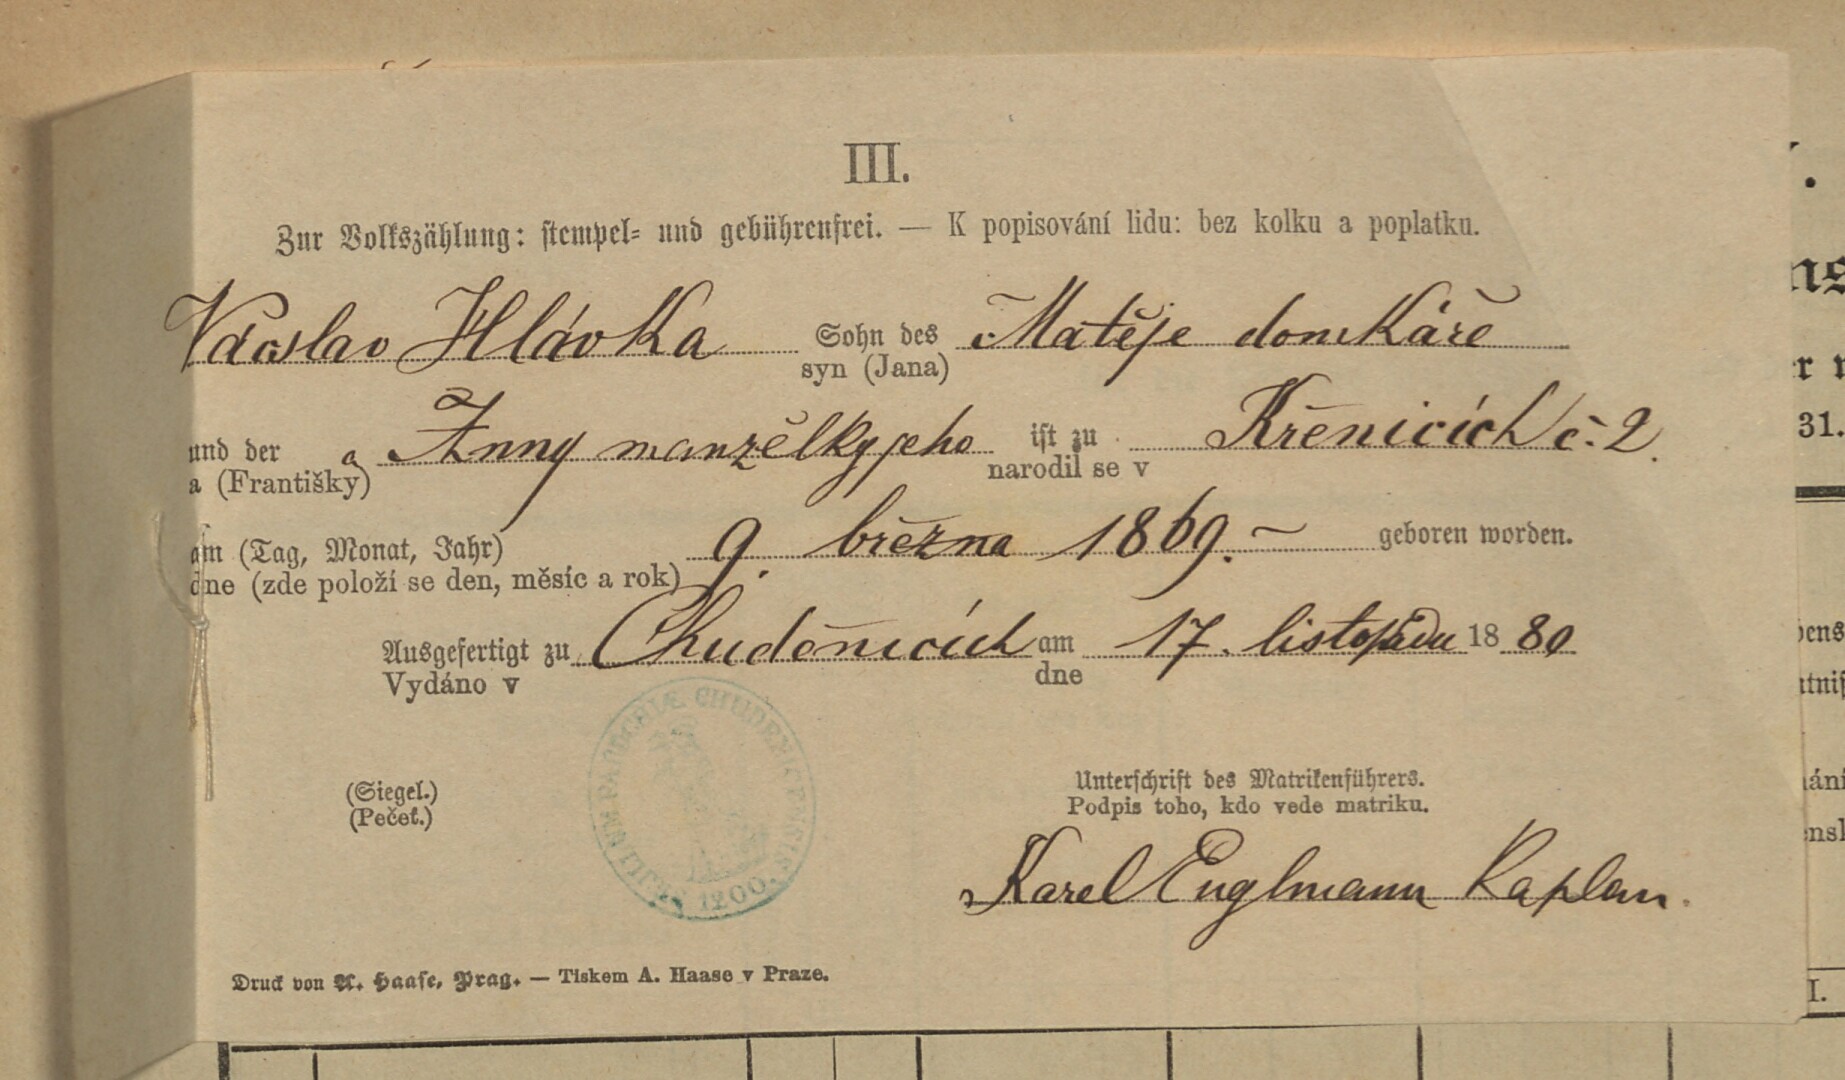 III.
Zur Volkszählung: stempel= und gebührenfrei. — K popisování lidu: bez kolku a poplatku.
Václav Hlávka Sohn des Matěje domkáře
syn (Jana)
und der a Anny manželky jeho ist zu Křenicích č. 2.
a (Františky) narodil se v
am (Tag, Monat, Jahr) 9. března 1869. — geboren worden.
dne (zde položí se den, měsíc a rok)
Ausgefertigt zu Chuděnicích am 17. listopadu 1880
Vydáno v dne
SIGILLUM PAROCHIÆ CHUDENICENSIS 1200.
(Siegel.) Unterschrift des Matrikenführers.
(Pečeť.) Podpis toho, kdo vede matriku.
Karel Englmann Kaplan.
Druck von A. Haase, Prag. — Tiskem A. Haase v Praze.
31.
I.